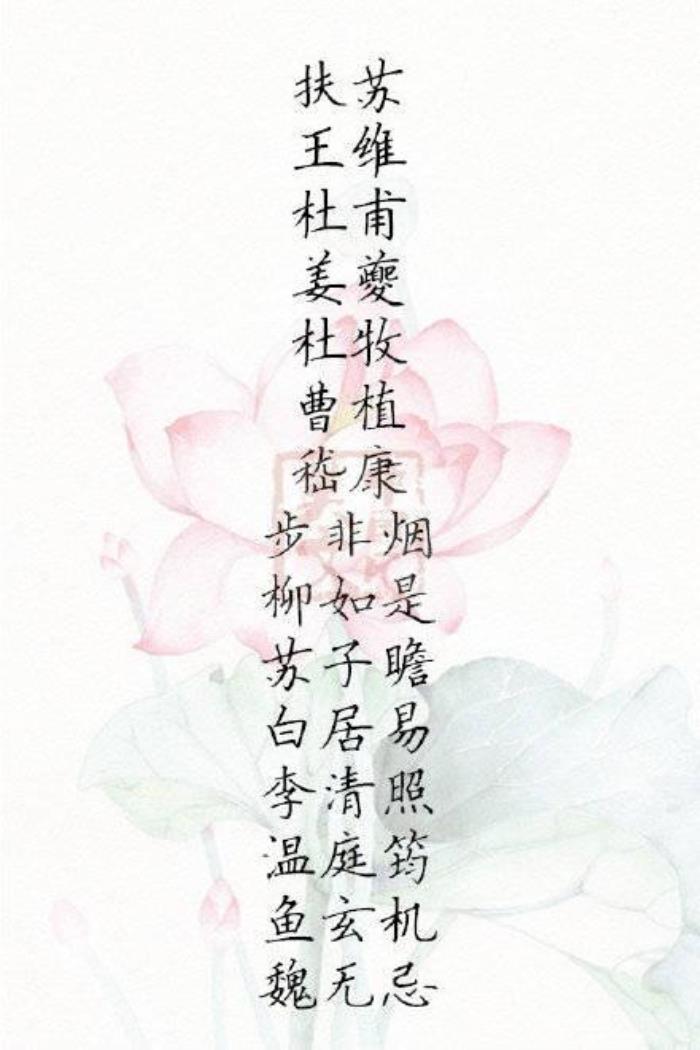 扶苏
王维
杜甫
姜夔
杜牧
曹植
嵇康
步非烟
柳如是
苏子瞻
白居易
李清照
温庭筠
鱼玄机
魏无忌